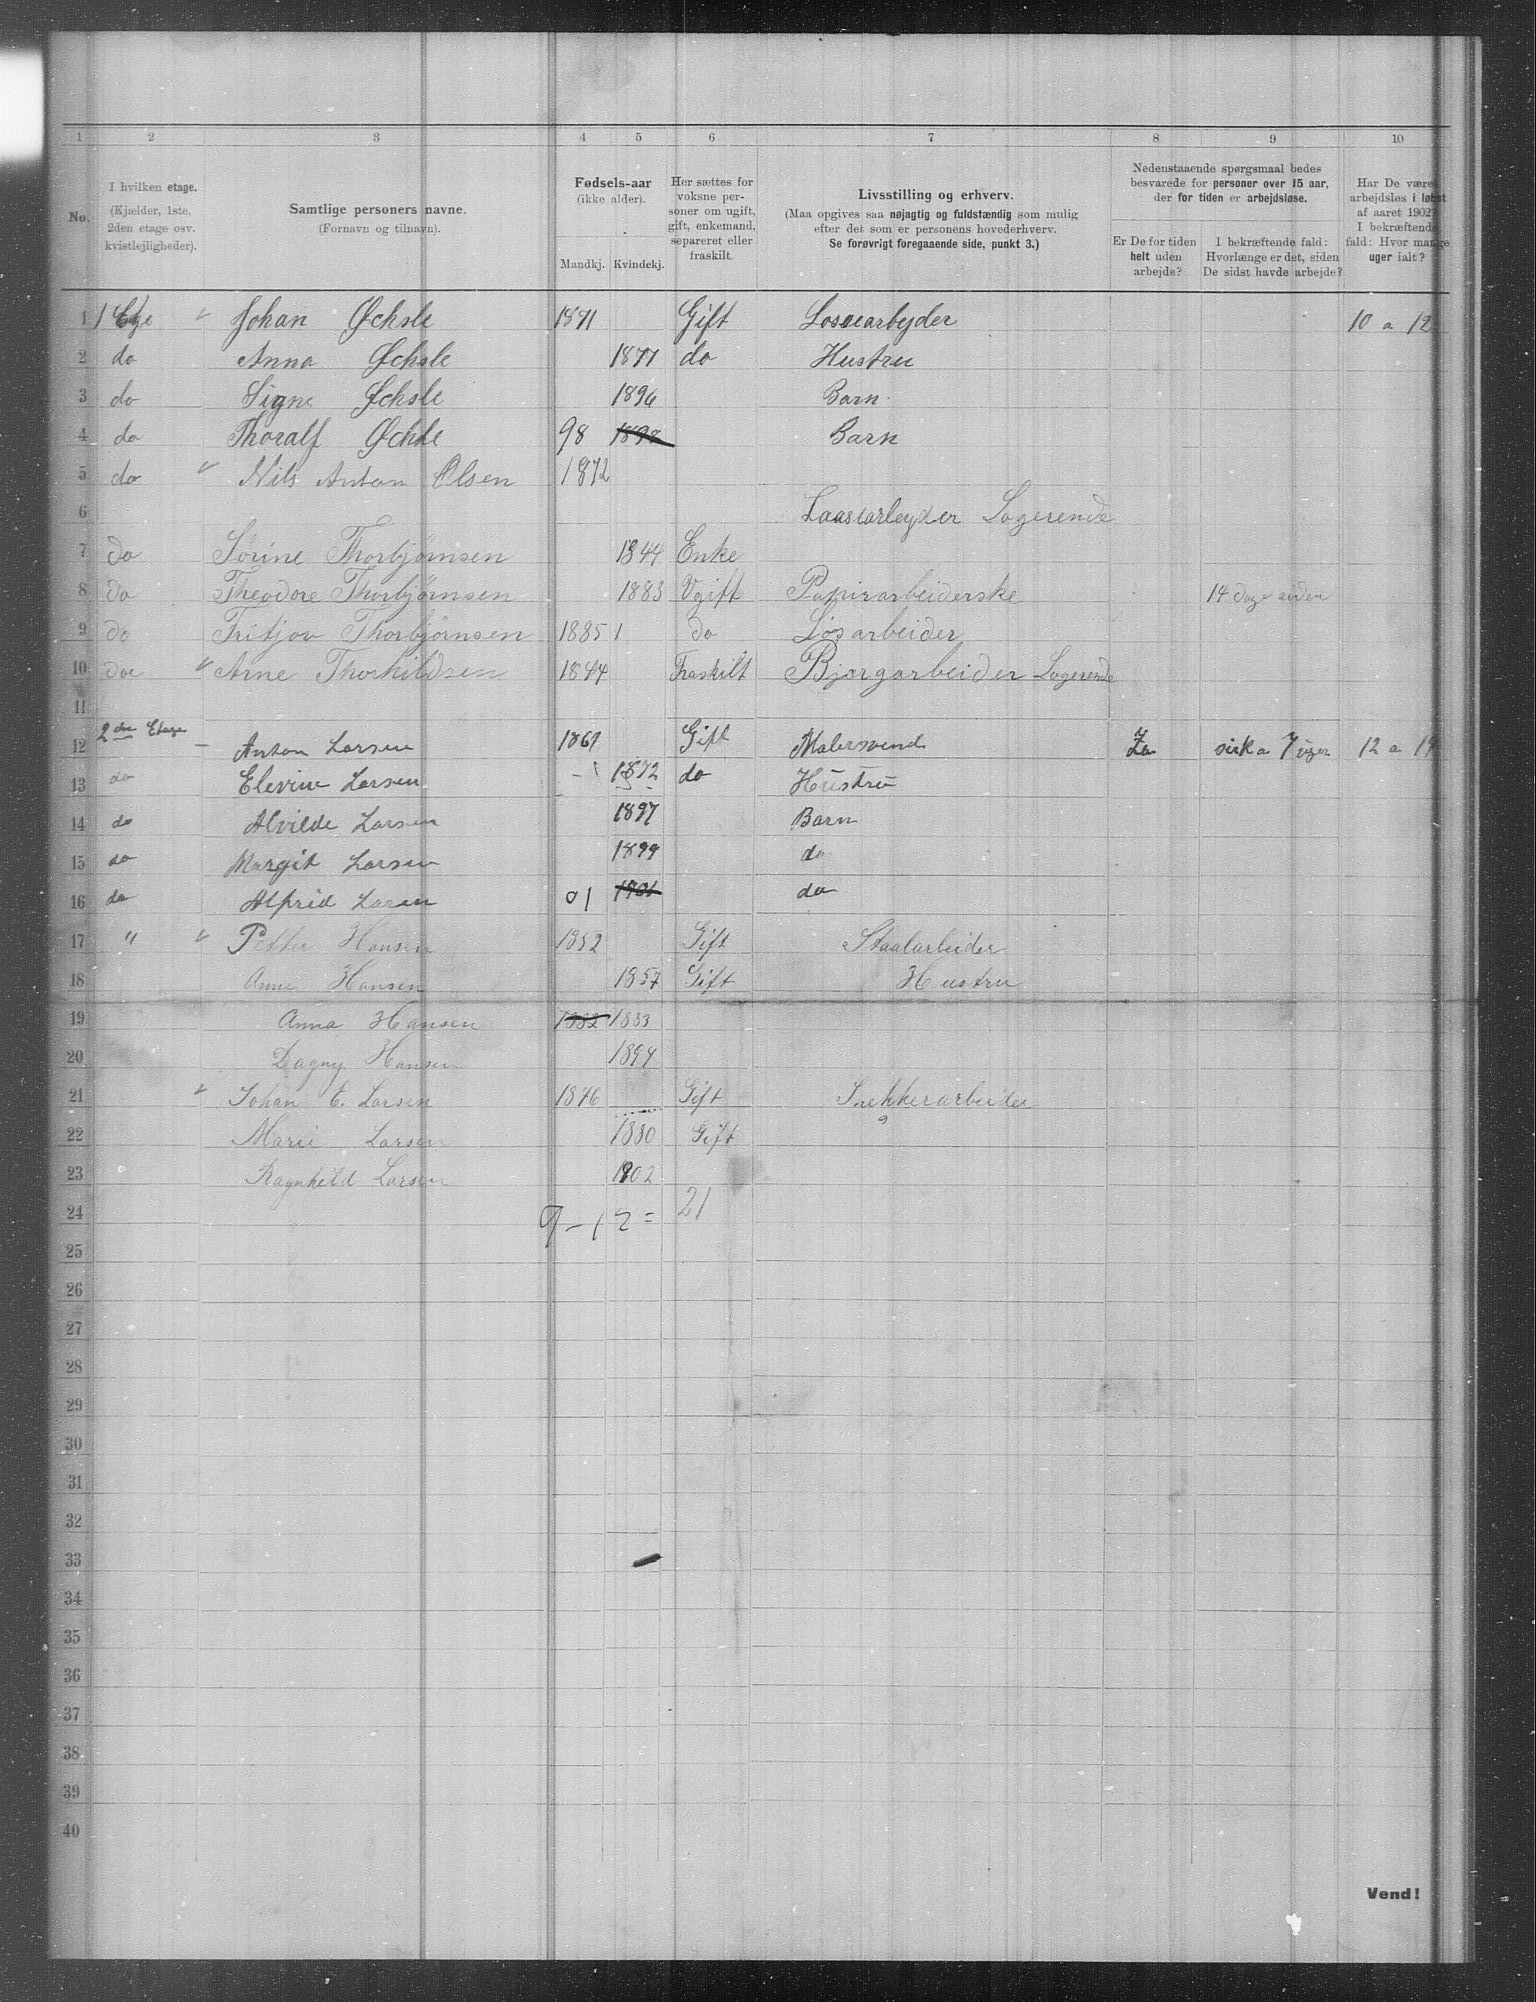 1 2 3 4 5 6 7 8 9 10
No.
I hvilken etage.
(Kjælder, 1ste,
2den etage osv.
kvistlejligheder).
Samtlige personers navne.
(Fornavn og tilnavn).
Fødsels-aar
(ikke alder).
Mandkj. Kvindekj.
Her sættes for
voksne per-
soner om ugift,
gift, enkemand,
separeret eller
fraskilt.
Livsstilling og erhverv.
(Maa opgives saa nøjagtig og fuldstændig som mulig
efter det som er personens hovederhverv.
Se forøvrigt foregaaende side, punkt 3.)
Nedenstaaende spørgsmaal bedes
besvarede for personer over 15 aar,
der for tiden er arbejdsløse.
Er De for tiden
helt uden
arbejde?
I bekræftende fald:
Hvorlænge er det, siden
De sidst havde arbejde?
Har De været
arbejdsløs i løbet
af aaret 1902?
I bekræftende
fald: Hvor mange
uger ialt?
1 1 Etge Johan Øchsle 1871 Gift Losearbejder 10 a 12
2 do Anna Øchsle 1877 do Hustru
3 do Signe Øchsle 1896 Barn
4 do Thoralf Øchsle 98 1898 Barn
5 do Nils Anton Olsen 1872
6 Laasearbeyder Logerende
7 do Sørine Thorbjørnsen 1844 Enke
8 do Theodore Thorbjørnsen 1883 Ugift Papirarbeiderske 14 dage siden
9 do Fritjov Thorbjørnsen 1885 1 do Løsarbeider
10 doe Arne Thorkildsen 1844 Fraskilt Bjorgarbeider Logerende
11
12 2den Etage Anton Larsen 1861 Gift Malersvend Ja sirka 7 uger 12 a 14
13 do Elevine Larsen 1872 do Hustru
14 do Alvilde Larsen 1897 Barn
15 do Margit Larsen 1899 do
16 do Alfrid Larsen 01 1901 do
17 " Petter Hansen 1852 Gift Staalarbeider
18 Anne Hansen 1857 Gift Hustru
19 Anna Hansen 1882 1883
20 Dagny Hansen 1894
21 Johan E. Larsen 1876 Gift Snekkerarbeider
22 Marie Larsen 1880 Gift
23 Ragnhild Larsen 1902
24 9 - 12 = 21
25
26
27
28
29
30
31
32
33
34
35
36
37
38
39
40
Vend!